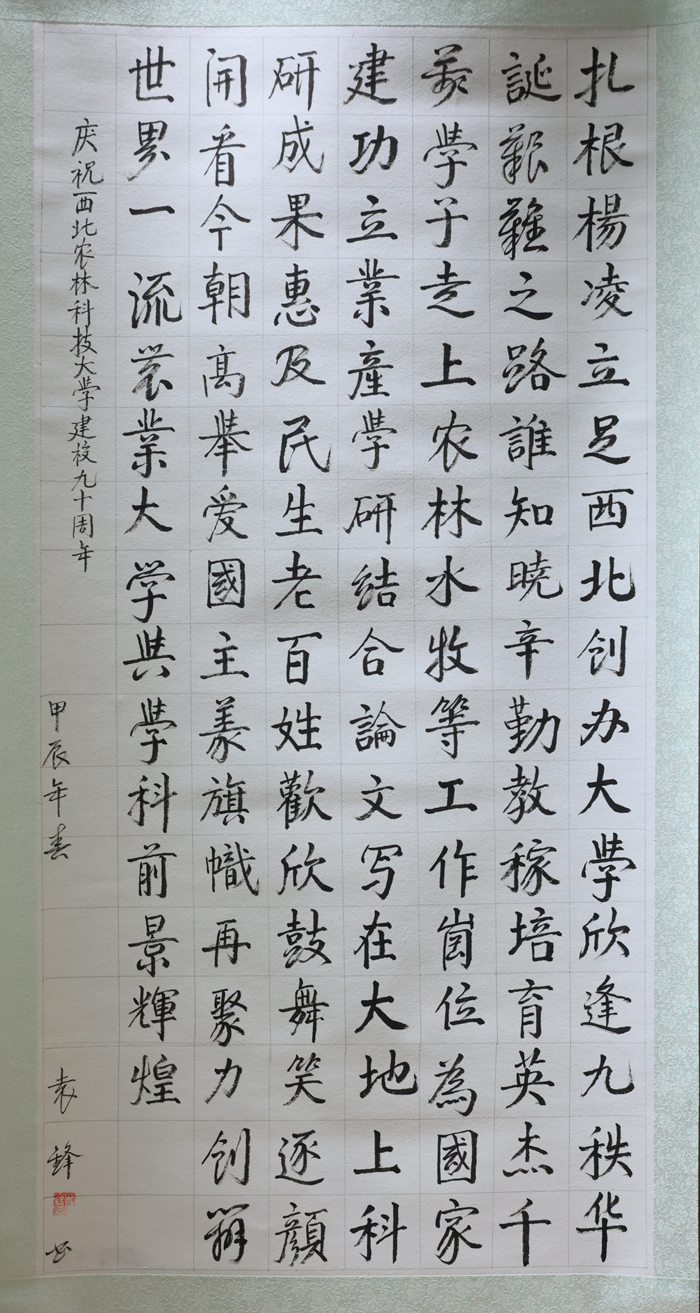 扎根楊凌立足西北创办大學欣逢九秩华
誕艱難之路誰知曉辛勤教稼培育英杰千
萬學子走上农林水牧等工作崗位為國家
建功立業產學研結合論文写在大地上科
研成果惠及民生老百姓歡欣鼓舞笑逐顔
開看今朝高举爱國主義旗幟再聚力创辦
世界一流農業大学與學科前景輝煌
庆祝西北农林科技大學建校九十周年
甲辰年春
袁鋒书